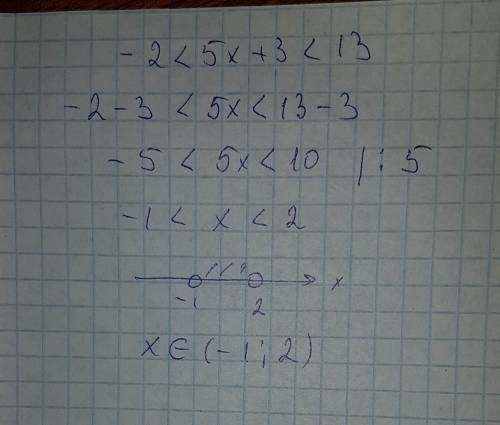 -2 < 5x + 3 < 13
-2 - 3 < 5x < 13 - 3
-5 < 5x < 10 | : 5
-1 < x < 2
x
-1 2
x ∈ (-1; 2)